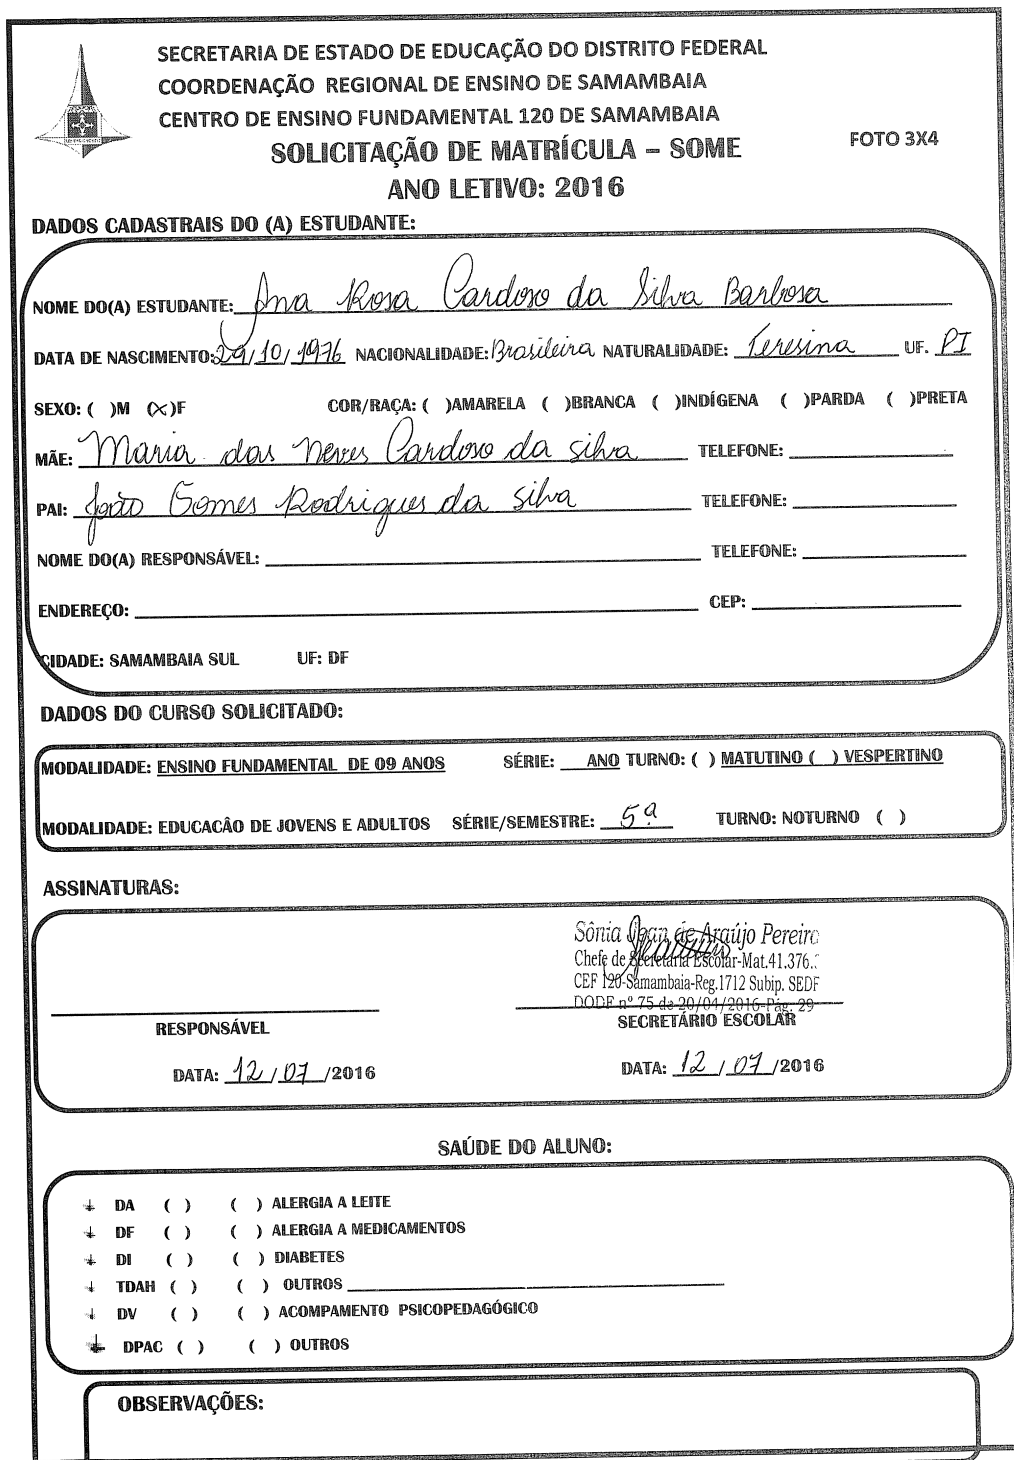 SECRETARIA DE ESTADO DE EDUCAÇÃO DO DISTRITO FEDERAL
COORDENAÇÃO REGIONAL DE ENSINO DE SAMAMBAIA
CENTRO DE ENSINO FUNDAMENTAL 120 DE SAMAMBAIA
SOLICITAÇÃO DE MATRÍCULA – SOME
FOTO 3X4
ANO LETIVO: 2016
DADOS CADASTRAIS DO (A) ESTUDANTE:
NOME DO(A) ESTUDANTE: Ana Rosa Cardoso da Silva Barbosa
DATA DE NASCIMENTO: 29/10/1976 NACIONALIDADE: Brasileira NATURALIDADE: Teresina UF. PI
SEXO: ( )M (x)F COR/RAÇA: ( )AMARELA ( )BRANCA ( )INDÍGENA ( )PARDA ( )PRETA
MÃE: Maria das Neves Cardoso da silva TELEFONE:
PAI: João Gomes Rodrigues da silva TELEFONE:
NOME DO(A) RESPONSÁVEL: TELEFONE:
ENDEREÇO: CEP:
CIDADE: SAMAMBAIA SUL UF: DF
DADOS DO CURSO SOLICITADO:
MODALIDADE: ENSINO FUNDAMENTAL DE 09 ANOS SÉRIE: ANO TURNO: ( ) MATUTINO ( ) VESPERTINO
MODALIDADE: EDUCACÂO DE JOVENS E ADULTOS SÉRIE/SEMESTRE: 5ª TURNO: NOTURNO ( )
ASSINATURAS:
Sônia Jean de Araújo Pereira
Chefe de Secretaria Escolar-Mat.41.376.
CEF 120-Samambaia-Reg.1712 Subip. SEDF
DODF nº 75 de 20/04/2016-Pág. 29
RESPONSÁVEL SECRETÁRIO ESCOLAR
DATA: 12/07/2016 DATA: 12/07/2016
SAÚDE DO ALUNO:
DA ( ) ( ) ALERGIA A LEITE
DF ( ) ( ) ALERGIA A MEDICAMENTOS
DI ( ) ( ) DIABETES
TDAH ( ) ( ) OUTROS
DV ( ) ( ) ACOMPAMENTO PSICOPEDAGÓGICO
DPAC ( ) ( ) OUTROS
OBSERVAÇÕES: